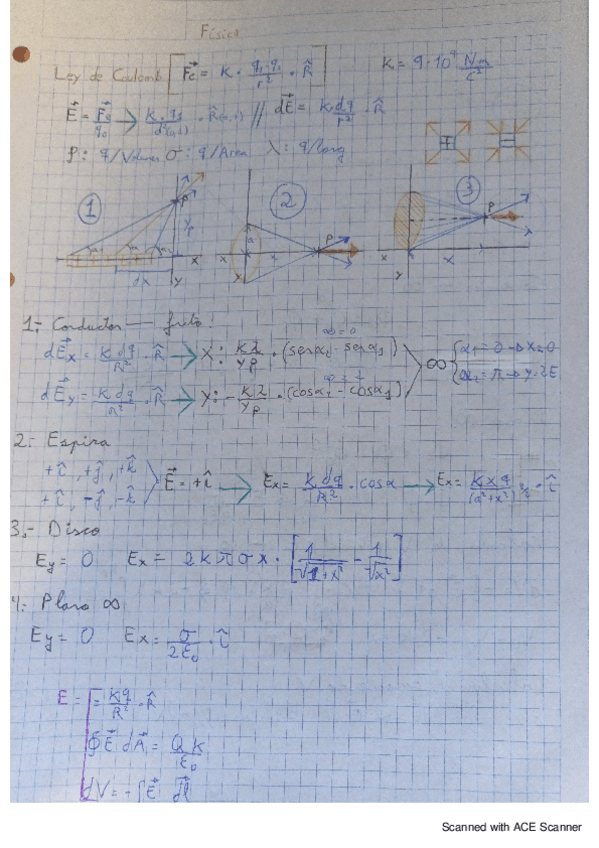 Física
Ley de Coulomb [F⃗c = K · q₁·q₁/r² · R̂] K = 9·10⁹ Nm/c²
E⃗ = F⃗e/q₀ → K·q₁/d²(0,1) · R̂(0,1) // dE⃗ = K dq/r² · R̂
ρ: q/Volumen σ: q/Area λ: q/long
1 2 3
P P P
Yp a
x x x x x
dx y y y
1.- Conductor — finito:
dE⃗x = K dq/R² · R̂ → X: Kλ/Yp · (senα₂ - senα₁) ∞ { α₁ = 0 → X = 0
dE⃗y = K dq/R² · R̂ → Y: - Kλ/Yp · (cosα₂ - cosα₁) α₂ = π → y·2E
2.- Espira
+î, +ĵ, +k̂
+î, -ĵ, -k̂ E⃗ = +î → Ex = K dq/R² · cosα → Ex = K x q/(a²+x²)^3/2 · î
3.- Disco
Ey = 0 Ex = 2Kπσx · [1/√x² - 1/√1+x²]
4.- Plano ∞
Ey = 0 Ex = σ/2ε₀ · î
E = [ = Kq/R² · R̂
∮E⃗ dA⃗ = QK/ε₀
dV = -∫E⃗ dl⃗
Scanned with ACE Scanner